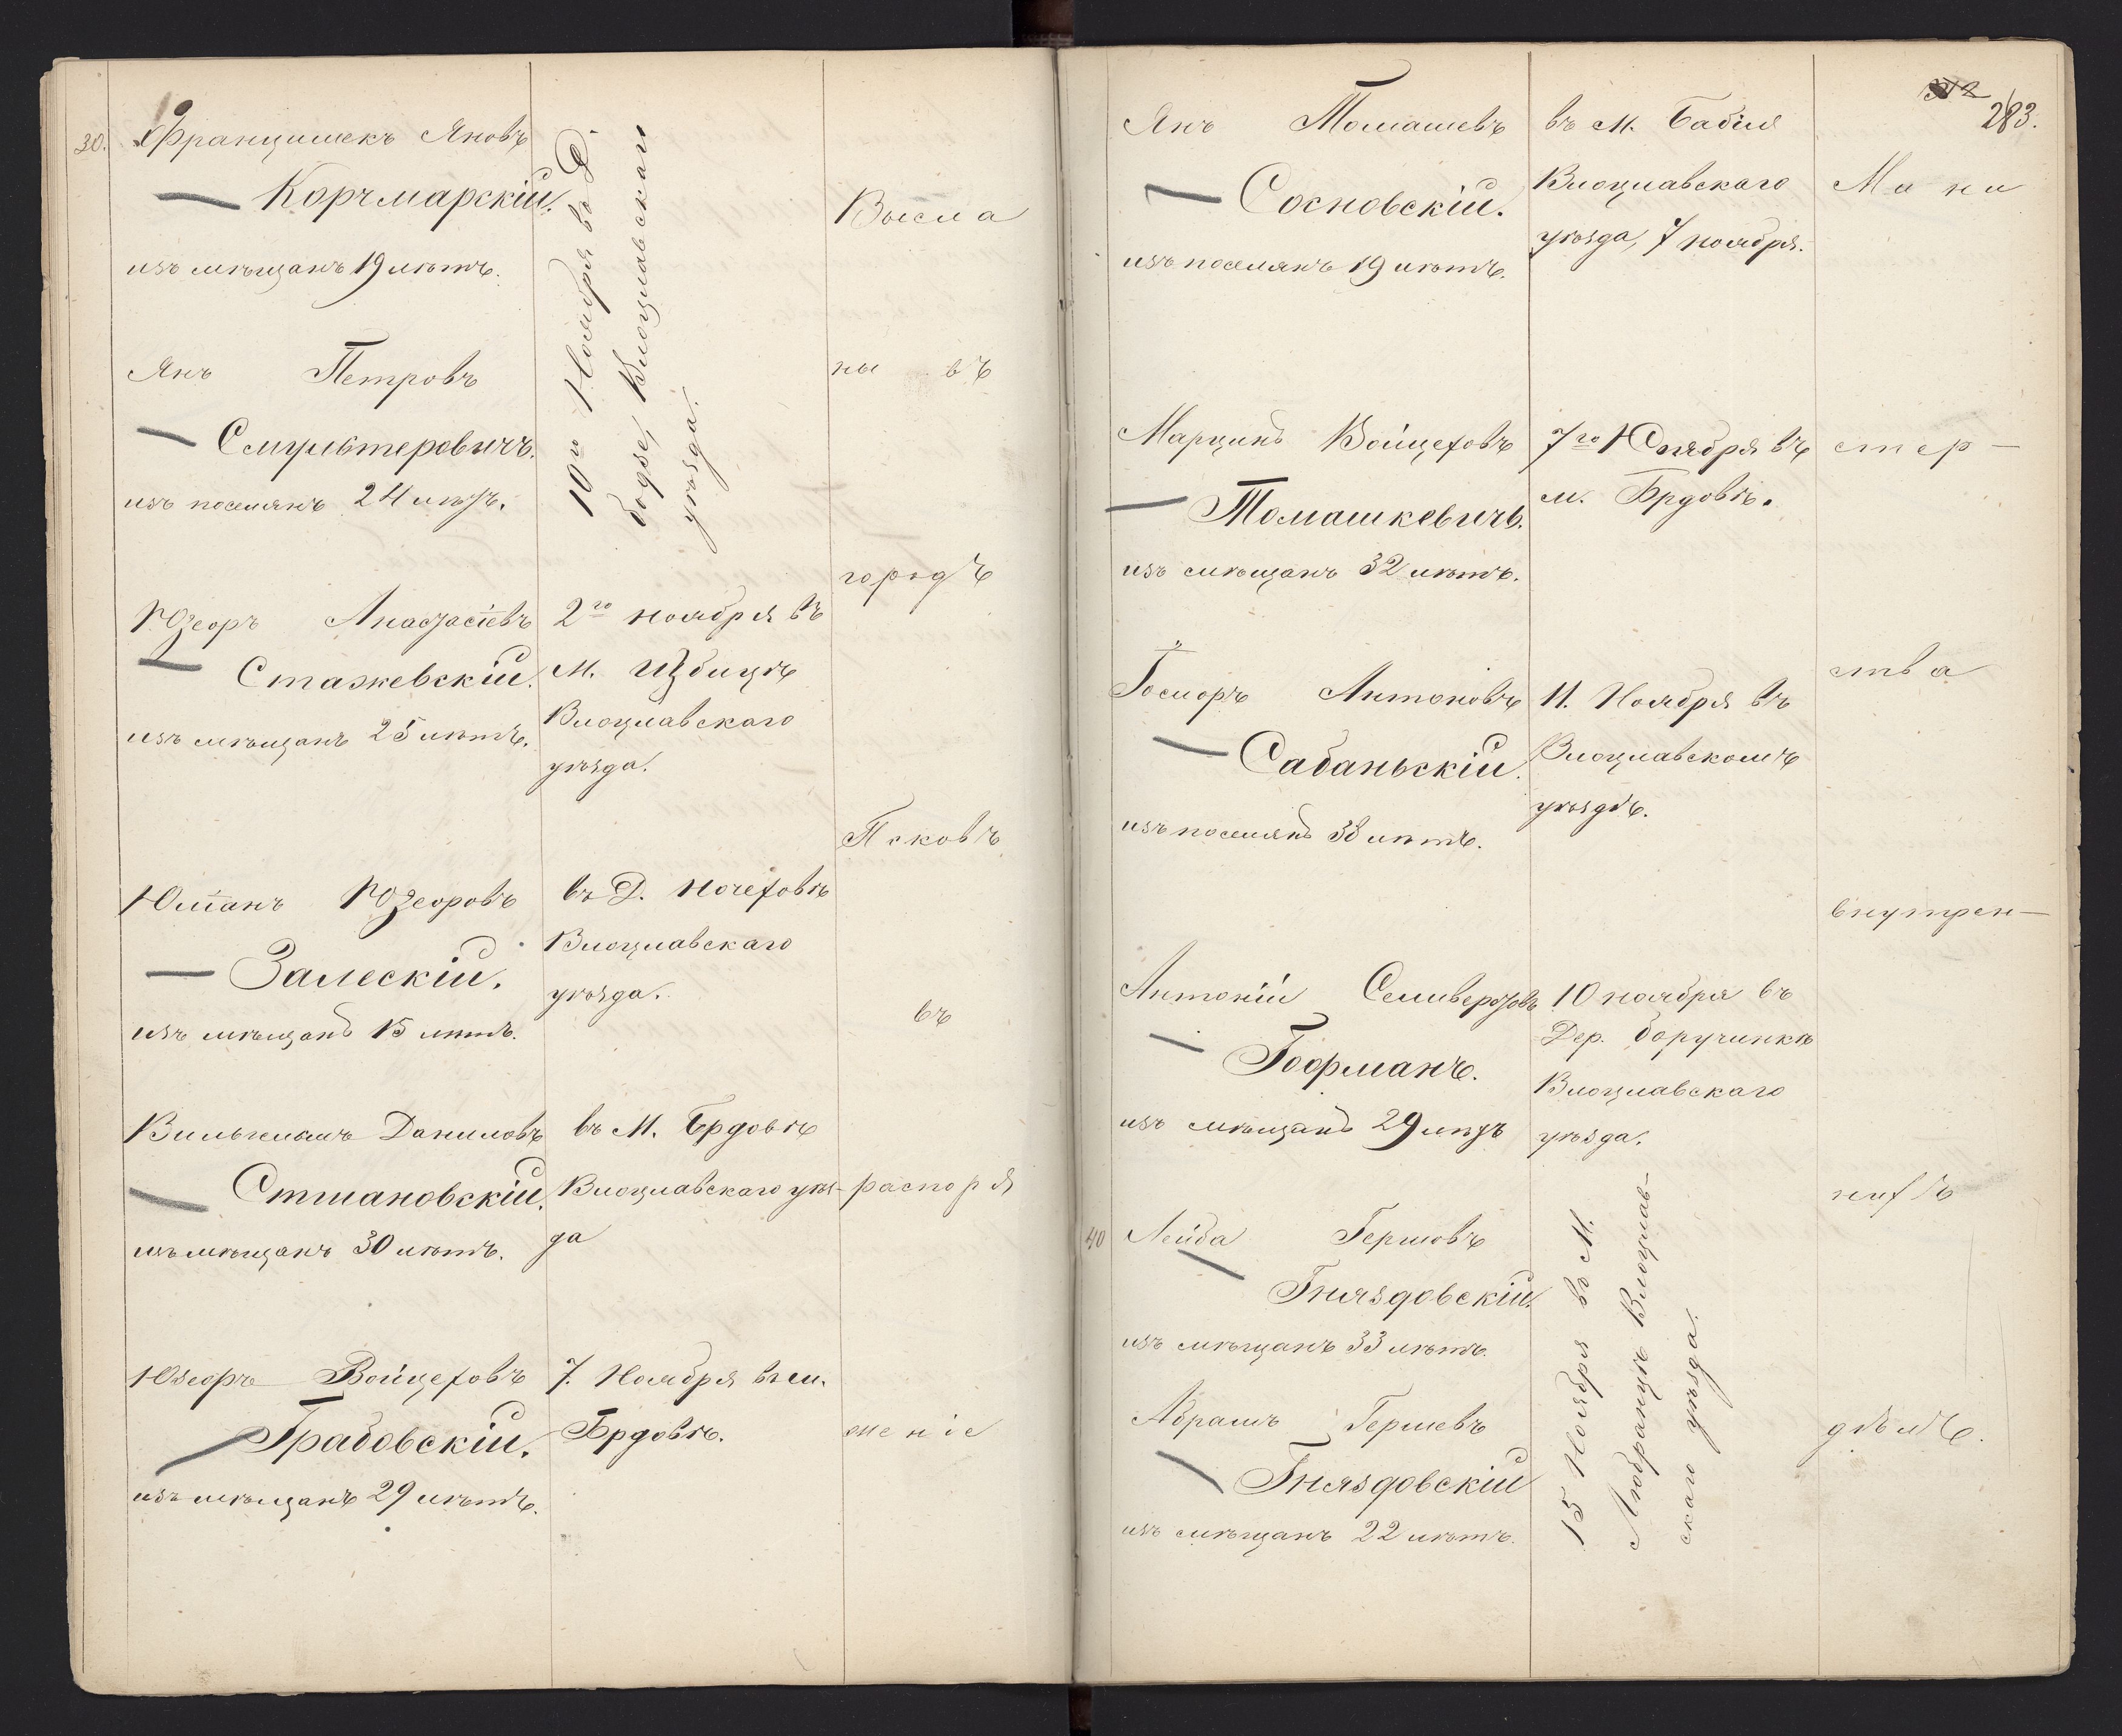 30. Францишекъ Яновъ
Корчмарскій.
изъ мѣщанъ 19 лѣтъ.
10го Ноября въ Д.
бодзе, Влоцлавскаго
уѣзда.
Янъ Петровъ
Смультеровичъ.
изъ поселянъ 24 лѣтъ.
Юзефъ Анастасіевъ
Стажевскій.
изъ мѣщанъ 25 лѣтъ.
2го ноября въ
М. Избицѣ
Влоцлавскаго
уѣзда.
Юліанъ Юзефовъ
Залескій.
изъ мѣщанъ 15 лѣтъ.
въ Д.
Влоцлавскаго
уѣзда.
Вильгельмъ Даниловъ
изъ мѣщанъ 30 лѣтъ.
въ М. Брдовѣ
Влоцлавскаго уѣз-
да
Юзефъ Войцеховъ
Грабовскій.
изъ мѣщанъ 29 лѣтъ.
7. Ноября въ м.
Брдовѣ.
Высла
ны въ
городъ
Псковъ
въ
распоря
женіе
283.
Янъ Томашевъ
Сосновскій.
изъ поселянъ 19 лѣтъ.
въ М. Бабія
Влоцлавскаго
уѣзда, 7 ноября.
Марцинъ Войцеховъ
Томашкевичъ.
изъ мѣщанъ 32 лѣтъ.
7го Ноября въ
м. Брдовѣ.
Антоновъ
Сабаньскій.
изъ поселянъ 38 лѣтъ.
11. Ноября въ
Влоцлавскомъ
уѣздѣ.
Антоній
Гофманъ.
изъ мѣщанъ 29 лѣтъ
10 ноября въ
Дер. боручинкѣ
Влоцлавскаго
уѣзда.
40 Лейба Гершовъ
Гняздовскій.
изъ мѣщанъ 33 лѣтъ.
Абрамъ Гершевъ
Гняздовскій
изъ мѣщанъ 22 лѣтъ.
15 Ноября въ М.
Любранцѣ Влоцлав-
скаго уѣзда.
Мини
стер-
ства
внутрен-
нихъ
дѣлъ.